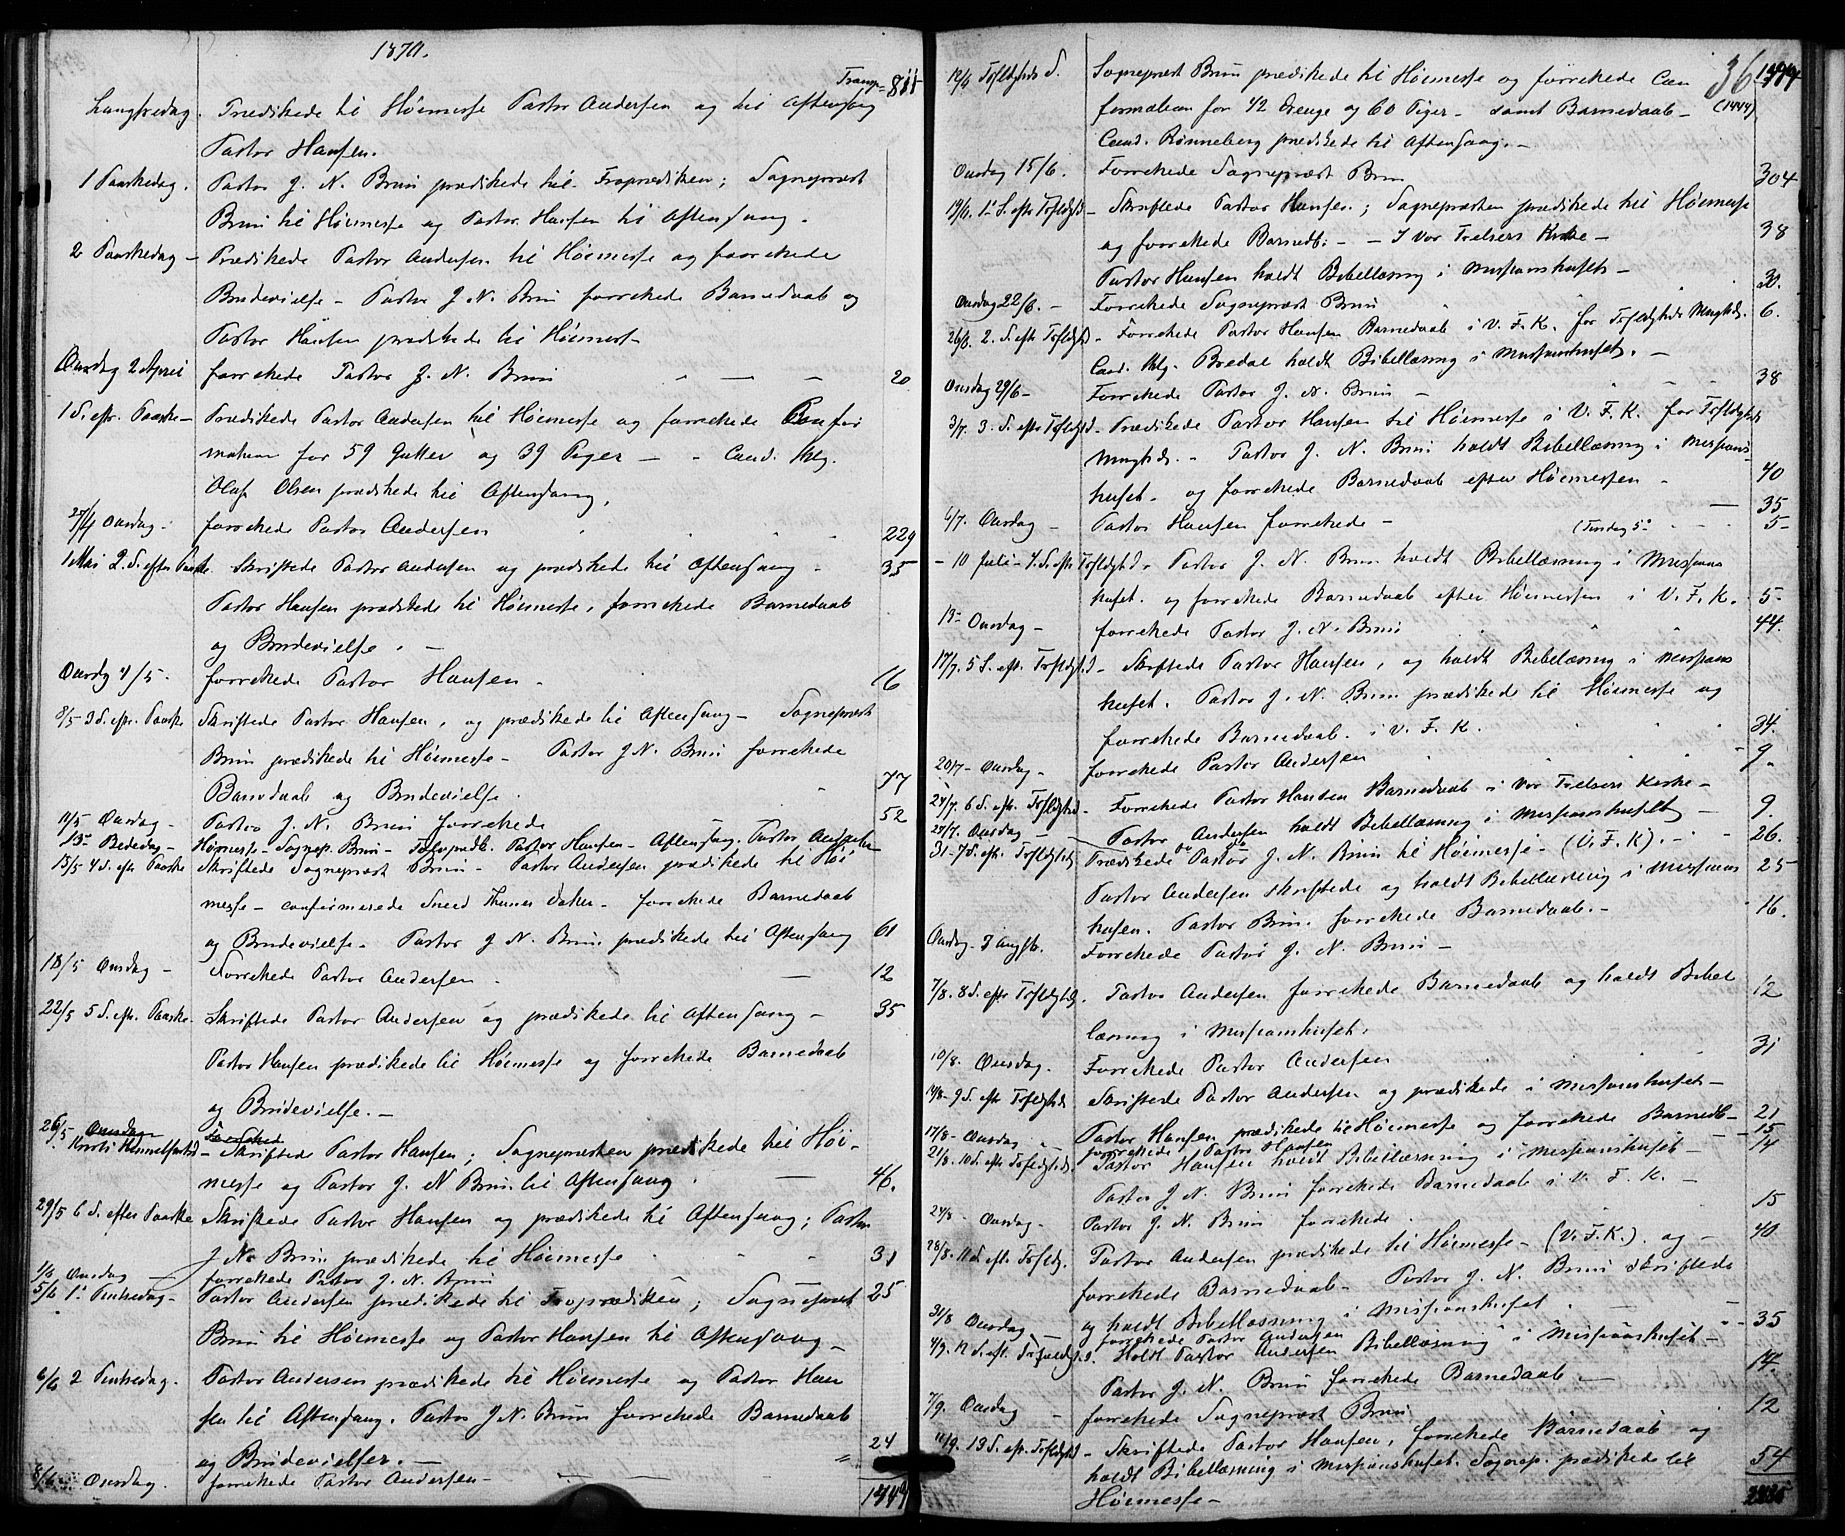 1870.
Transp. 811
Langfredag. Prædikede til Höimesse Pastor Andersen og til Aftensang
Pastor Hansen.
1 Paaskedag. Pastor J. N. Brun prædikede til Froprædiken; Sognepræst
Brun til Höimesse og Pastor Hansen til Aftensang.
2 Paaskedag – Prædikede Pastor Andersen til Höimesse og forrettede
Brudevielse – Pastor J. N. Brun forrettede Barnedaab og
Pastor Hansen prædikede til Höimesse
Onsdag 2 April forrettede Pastor J. N. Brun 20
1 S. eft. Paaske – Prædikede Pastor Andersen til Höimesse og forrettede Confir
mation for 59 Gutter og 39 Piger – Cand. thlg.
Oluf Olsen prædikede til Aftensang.
27/4 Onsdag – forrettede Pastor Andersen 229
1 Mai 2 S. efter Paaske. Skriftede Pastor Andersen og prædikede til Aftensang – 35
Pastor Hansen prædikede til Höimesse, forrettede Barnedaab
og Brudevielse. –
Onsdg 4/5. forrettede Pastor Hansen – 16
8/5 3 S. eft. Paaske Skriftede Pastor Hansen, og prædikede til Aftensang – Sognepræst
Brun prædikede til Höimesse – Pastor J. N. Brun forrettede
Barnedaab og Brudevielse. 77
11/5 Onsdag – Pastor J. N. Brun forrettede 52
13 Bededag – Höimesse – Sognep. Brun – Froprædk. Pastor Hansen – Aftensang. Pastor Andersen
15/5 4 S. eft Paaske Skriftede Sognepræst Brun – Pastor Andersen prædikede til Höi
messe – confirmerede – forrettede Barnedaab
og Brudevielse – Pastor J. N. Brun prædikede til Aftensang 61
18/5 Onsdag – Forrettede Pastor Andersen. 12
22/5 5 S. eft. Paaske. Skriftede Pastor Andersen og prædikede til Aftensang – 35
Pastor Hansen prædikede til Höimesse og forrettede Barnedaab
og Brudevielse. –
26/5 Onsdag Forrettede
Kristi Himmelfartsd – Skriftede Pastor Hansen; Sognepræsten prædikede til Höi-
messe og Pastor J. N Brun til Aftensang. 46.
29/5 6 S. efter Paaske Skriftede Pastor Hansen og prædikede til Aftensang; Pastor
J. N. Brun prædikede til Höimesse 31
1/6 Onsdag – forrettede Pastor J. N. Brun 25
5/6 1ste Pintsedag – Pastor Andersen prædikede til Froprædiken; Sognepræst
Brun til Höimesse og Pastor Hansen til Aftensang –
6/6 2 Pintsedag. Pastor Andersen prædikede til Höimesse og Pastor Han
sen til Aftensang. Pastor J. N. Brun forrettede Barnedaab
og Brudevielser. – 24
8/6 Onsdag. forrettede Pastor Andersen – "
1444
36
1444
12/6 Trefoldigheds S. Sognepræst Brun prædikede til Höimesse og forrettede Con
firmation for 42 Drenge og 60 Piger – samt Barnedaab – (1444)
Cand. Rönneberg prædikede til Aftensang. –
Onsdag 15/6. Forrettede Sognepræst Brun 304
19/6. 1ste S. efter Trefldghd – Skriftede Pastor Hansen; Sognepræsten prædikede til Höimesse
og forrettede Barnedb. – – I Vor Frelsers Kirke – 38
Pastor Hansen holdt Bibellæsning i Missionshuset – 30.
Onsdag 22/6. – Forrettede Sognepræst Brun 6.
26/6. 2. S. eft Trefldghd. Forrettede Pastor Hansen Barnedaab i V. F. K. for Trefldgheds Mnghd.
Cand. thlg. Bredal holdt Bibellæsning i Missionshuset. –
Onsdag 29/6 – Forrettede Pastor J. N. Brun – 38
3/7. 3. S. efter Trefldghd – Prædikede Pastor Hansen til Höimesse i V. F. K. for Trefldgheds
Mnghd. – Pastor J. N. Brun holdt Bibellæsning i Missions-
huset – og forrettede Barnedaab efter Höimessen – 40
6/7. Onsdag – Pastor Hansen forrettede – 35
(Tirsdag 5te 5 –
– 10 Juli – 4. S. eft Trefldghd. Pastor J. N. Brun holdt Bibellæsning i Missions
huset. og forrettede Barnedaab efter Höimessen i V. F. K. 5 –
13 – Onsdag – forrettede Pastor J. N. Brun 44.
17/7. 5 S. eft. Trefldghd – Skriftede Pastor Hansen, og holdt Bibellæsning i Missions
huset. Pastor J. N. Brun prædikede til Höimesse og
forrettede Barnedaab. i V. F. K. 34.
20/7 – Onsdag – forrettede Pastor Andersen 9.
24/7. 6 S. eft. Trefldghd. – Forrettede Pastor Hansen Barnedaab i Vor Frelsers Kirke –
Pastor Andersen holdt Bibellæsning i Missionshuset – 9.
27/7. Onsdag – do do 26.
31 – 7 S. eft. Trefldghd Prædikede Pastor J. N. Brun til Höimesse – (V. F. K). – 25
Pastor Andersen skriftede og holdt Bibellæsning i Missions
husen. Pastor Brun forrettede Barnedaab. – 16.
Onsdag. 3 Augst. Forrettede Pastor J. N. Brun –
7/8. 8 S. efter Trefldghd. Pastor Andersen forrettede Barnedaab og holdt Bibel 12
læsning i Missionshuset.
10/8. Onsdag. Forrettede Pastor Andersen 31
14/8 – 9 S. eft Trefldghd Skriftede Pastor Andersen og prædikede i Missionshuset –
Pastor Hansen prædikede til Höimesse og forrettede Barnedb – 21
17/8 – Onsdag – forrettede Pastor Hansen 15
21/8. 10 S. eft Trefldghd. Pastor Hansen holdt Bibellæsning i Missionshuset – 14
Pastor J. N. Brun forrettede Barnedaab i V. F. K. –
24/8 – Onsdag – Pastor J. N. Brun forrettede 15
28/8. 11 S. eft Trefldg. Pastor Andersen prædikede til Höimesse – (V. F. K.). og – 40
forrettede Barnedaab – Pastor J. N. Brun skriftede
og holdt Bibellæsning i Missionshuset.
31/8 Onsdag – forrettede Pastor Andersen 35
4/9. 12 S. eft. Trefoldighd. Holdt Pastor Andersen Bibellæsning i Missionshuset –
Pastor J. N. Brun forrettede Barnedaab – 14.
7/9. Onsdag – forrettede Sognepræst Brun 12
11/9. 13 S. eft. Trefldghd – Skriftede Pastor Hansen, forrettede Barnedaab og
holdt Bibellæsning i Missionshuset. Sognep. prædikede til 54
Höimesse –